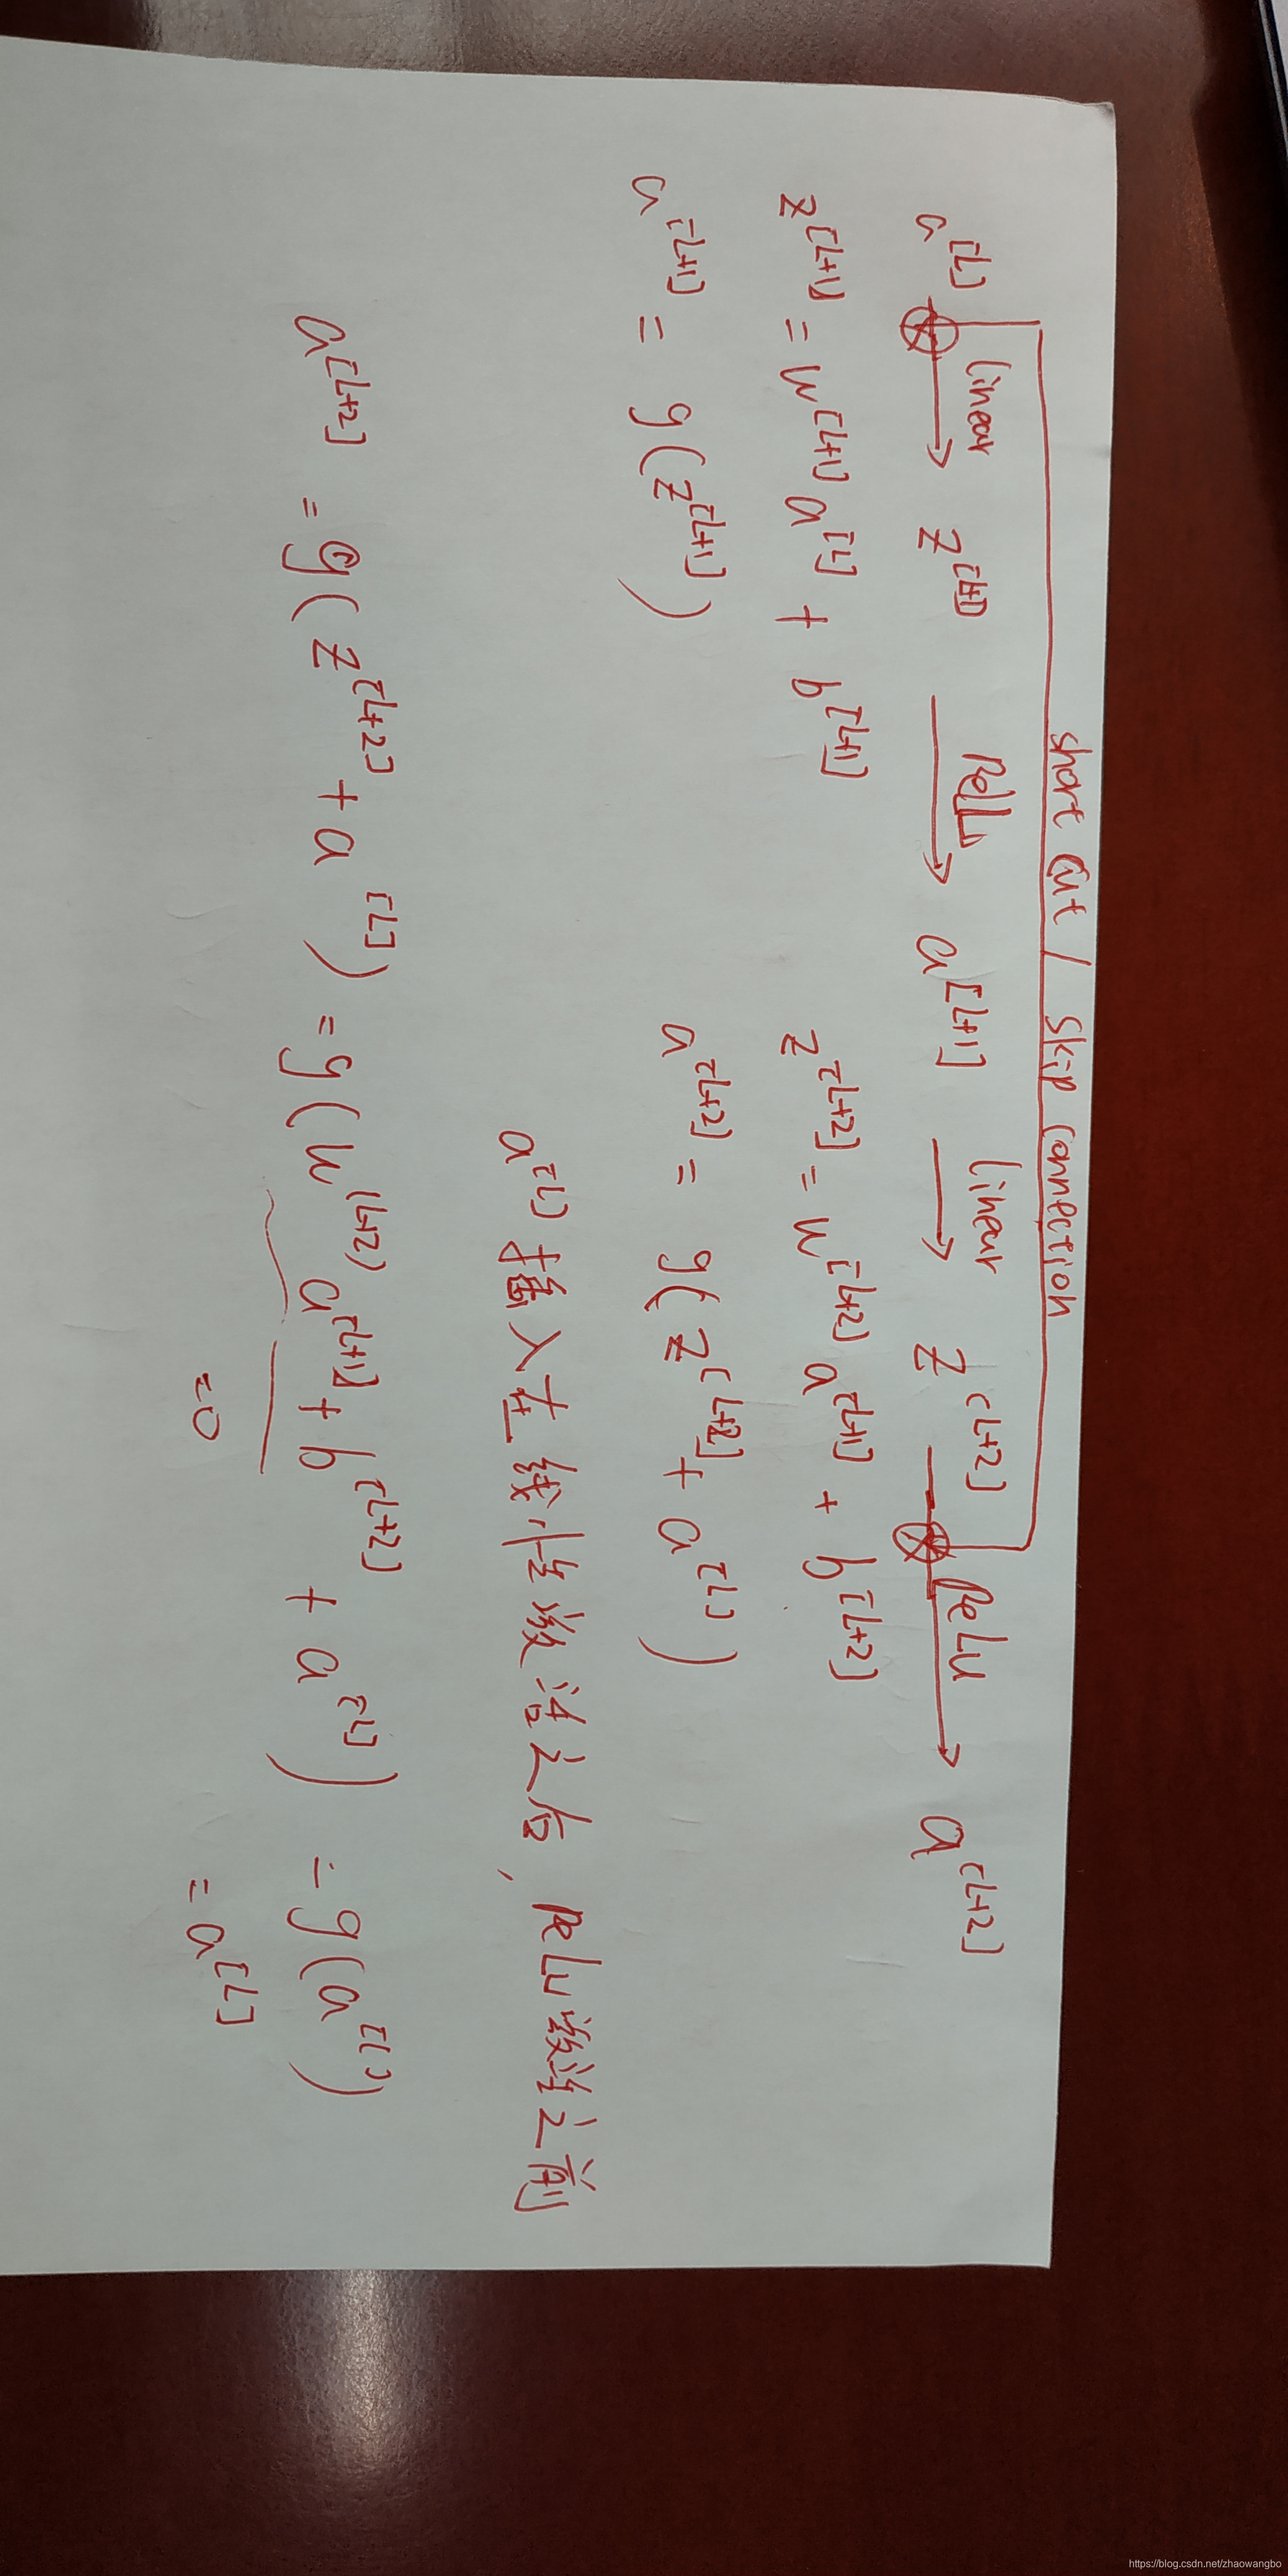 short cut / skip connection
a[L] linear → z[L+1] ReLu → a[L+1] linear → z[L+2] ReLu → a[L+2]
z[L+1] = w[L+1] a[L] + b[L+1] z[L+2] = w[L+2] a[L+1] + b[L+2]
a[L+1] = g(z[L+1]) a[L+2] = g(z[L+2] + a[L])
a[L] 插入在线性激活之后, ReLu激活之前
a[L+2] = g(z[L+2] + a[L]) = g(w(L+2) a[L+1] + b[L+2] + a[L]) = g(a[L])
=0 = a[L]
https://blog.csdn.net/zhaowangbo